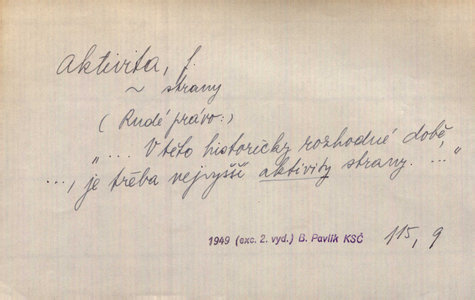 aktivita, f.
~ strany
(Rudé právo:)
"... V této historicky rozhodné době,
..., je třeba nejvyšší aktivity strany. ..."
1949 (exc. 2. vyd.) B. Pavlík KSČ 115, 9